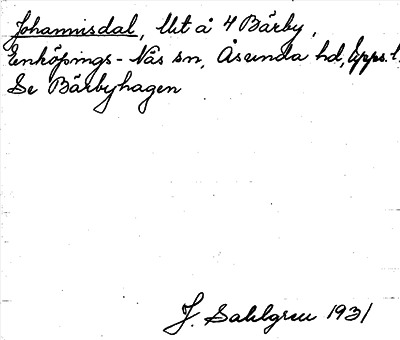 Johannisdal, lht å 4 Bärby,
Enköpings-Näs sn, Åsunda hd, Upps. l.
Se Bärbyhagen
J. Sahlgren 1931